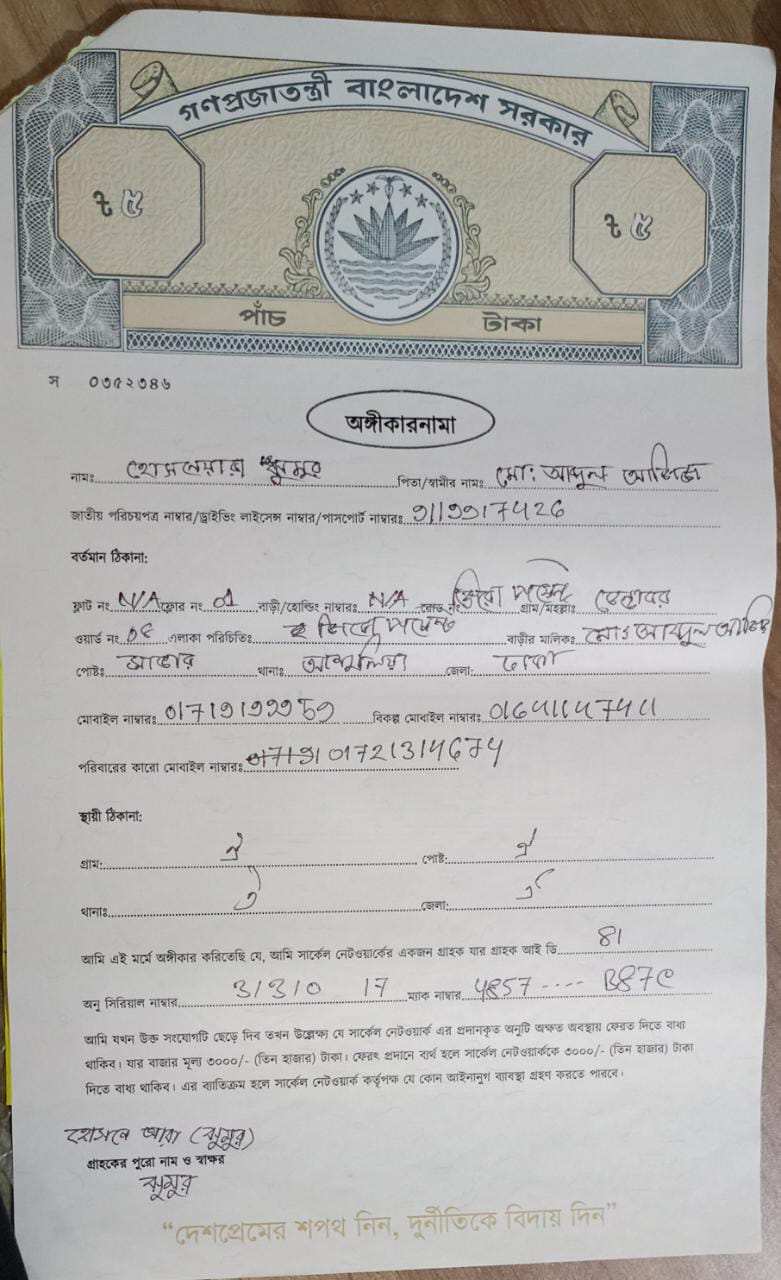 গণপ্রজাতন্ত্রী বাংলাদেশ সরকার
৳ ৫ ৳ ৫
পাঁচ টাকা
স ০৩৫২৩৪৬
অঙ্গীকারনামা
নামঃ হোসনেয়ারা ঝুমুর পিতা/স্বামীর নামঃ মো: আব্দুল আজিজ
জাতীয় পরিচয়পত্র নাম্বার/ড্রাইভিং লাইসেন্স নাম্বার/পাসপোর্ট নাম্বারঃ
বর্তমান ঠিকানা:
ফ্লাট নং N/A ফ্লোর নং 01 বাড়ী/হোল্ডিং নাম্বারঃ N/A রোড নং গ্রাম/মহল্লাঃ
ওয়ার্ড নং এলাকা পরিচিতিঃ বাড়ীর মালিকঃ মোঃ আব্দুল আজিজ
পোষ্টঃ সাভার থানাঃ আশুলিয়া জেলা: ঢাকা
মোবাইল নাম্বারঃ বিকল্প মোবাইল নাম্বারঃ
পরিবারের কারো মোবাইল নাম্বারঃ 01721314674
স্থায়ী ঠিকানা:
গ্রাম: ঐ পোষ্ট: ঐ
থানাঃ ঐ জেলা: ঐ
আমি এই মর্মে অঙ্গীকার করিতেছি যে, আমি সার্কেল নেটওয়ার্কের একজন গ্রাহক যার গ্রাহক আই ডি 81
অনু সিরিয়াল নাম্বার 31310 17 ম্যাক নাম্বার
আমি যখন উক্ত সংযোগটি ছেড়ে দিব তখন উল্লেক্ষ্য যে সার্কেল নেটওয়ার্ক এর প্রদানকৃত অনুটি অক্ষত অবস্থায় ফেরত দিতে বাধ্য
থাকিব। যার বাজার মূল্য ৩০০০/- (তিন হাজার) টাকা। ফেরৎ প্রদানে ব্যর্থ হলে সার্কেল নেটওয়ার্ককে ৩০০০/- (তিন হাজার) টাকা
দিতে বাধ্য থাকিব। এর ব্যাতিক্রম হলে সার্কেল নেটওয়ার্ক কর্তৃপক্ষ যে কোন আইনানুগ ব্যাবস্থা গ্রহণ করতে পারবে।
হোসনে আরা (ঝুমুর)
গ্রাহকের পুরো নাম ও স্বাক্ষর
ঝুমুর
“দেশপ্রেমের শপথ নিন, দুর্নীতিকে বিদায় দিন”